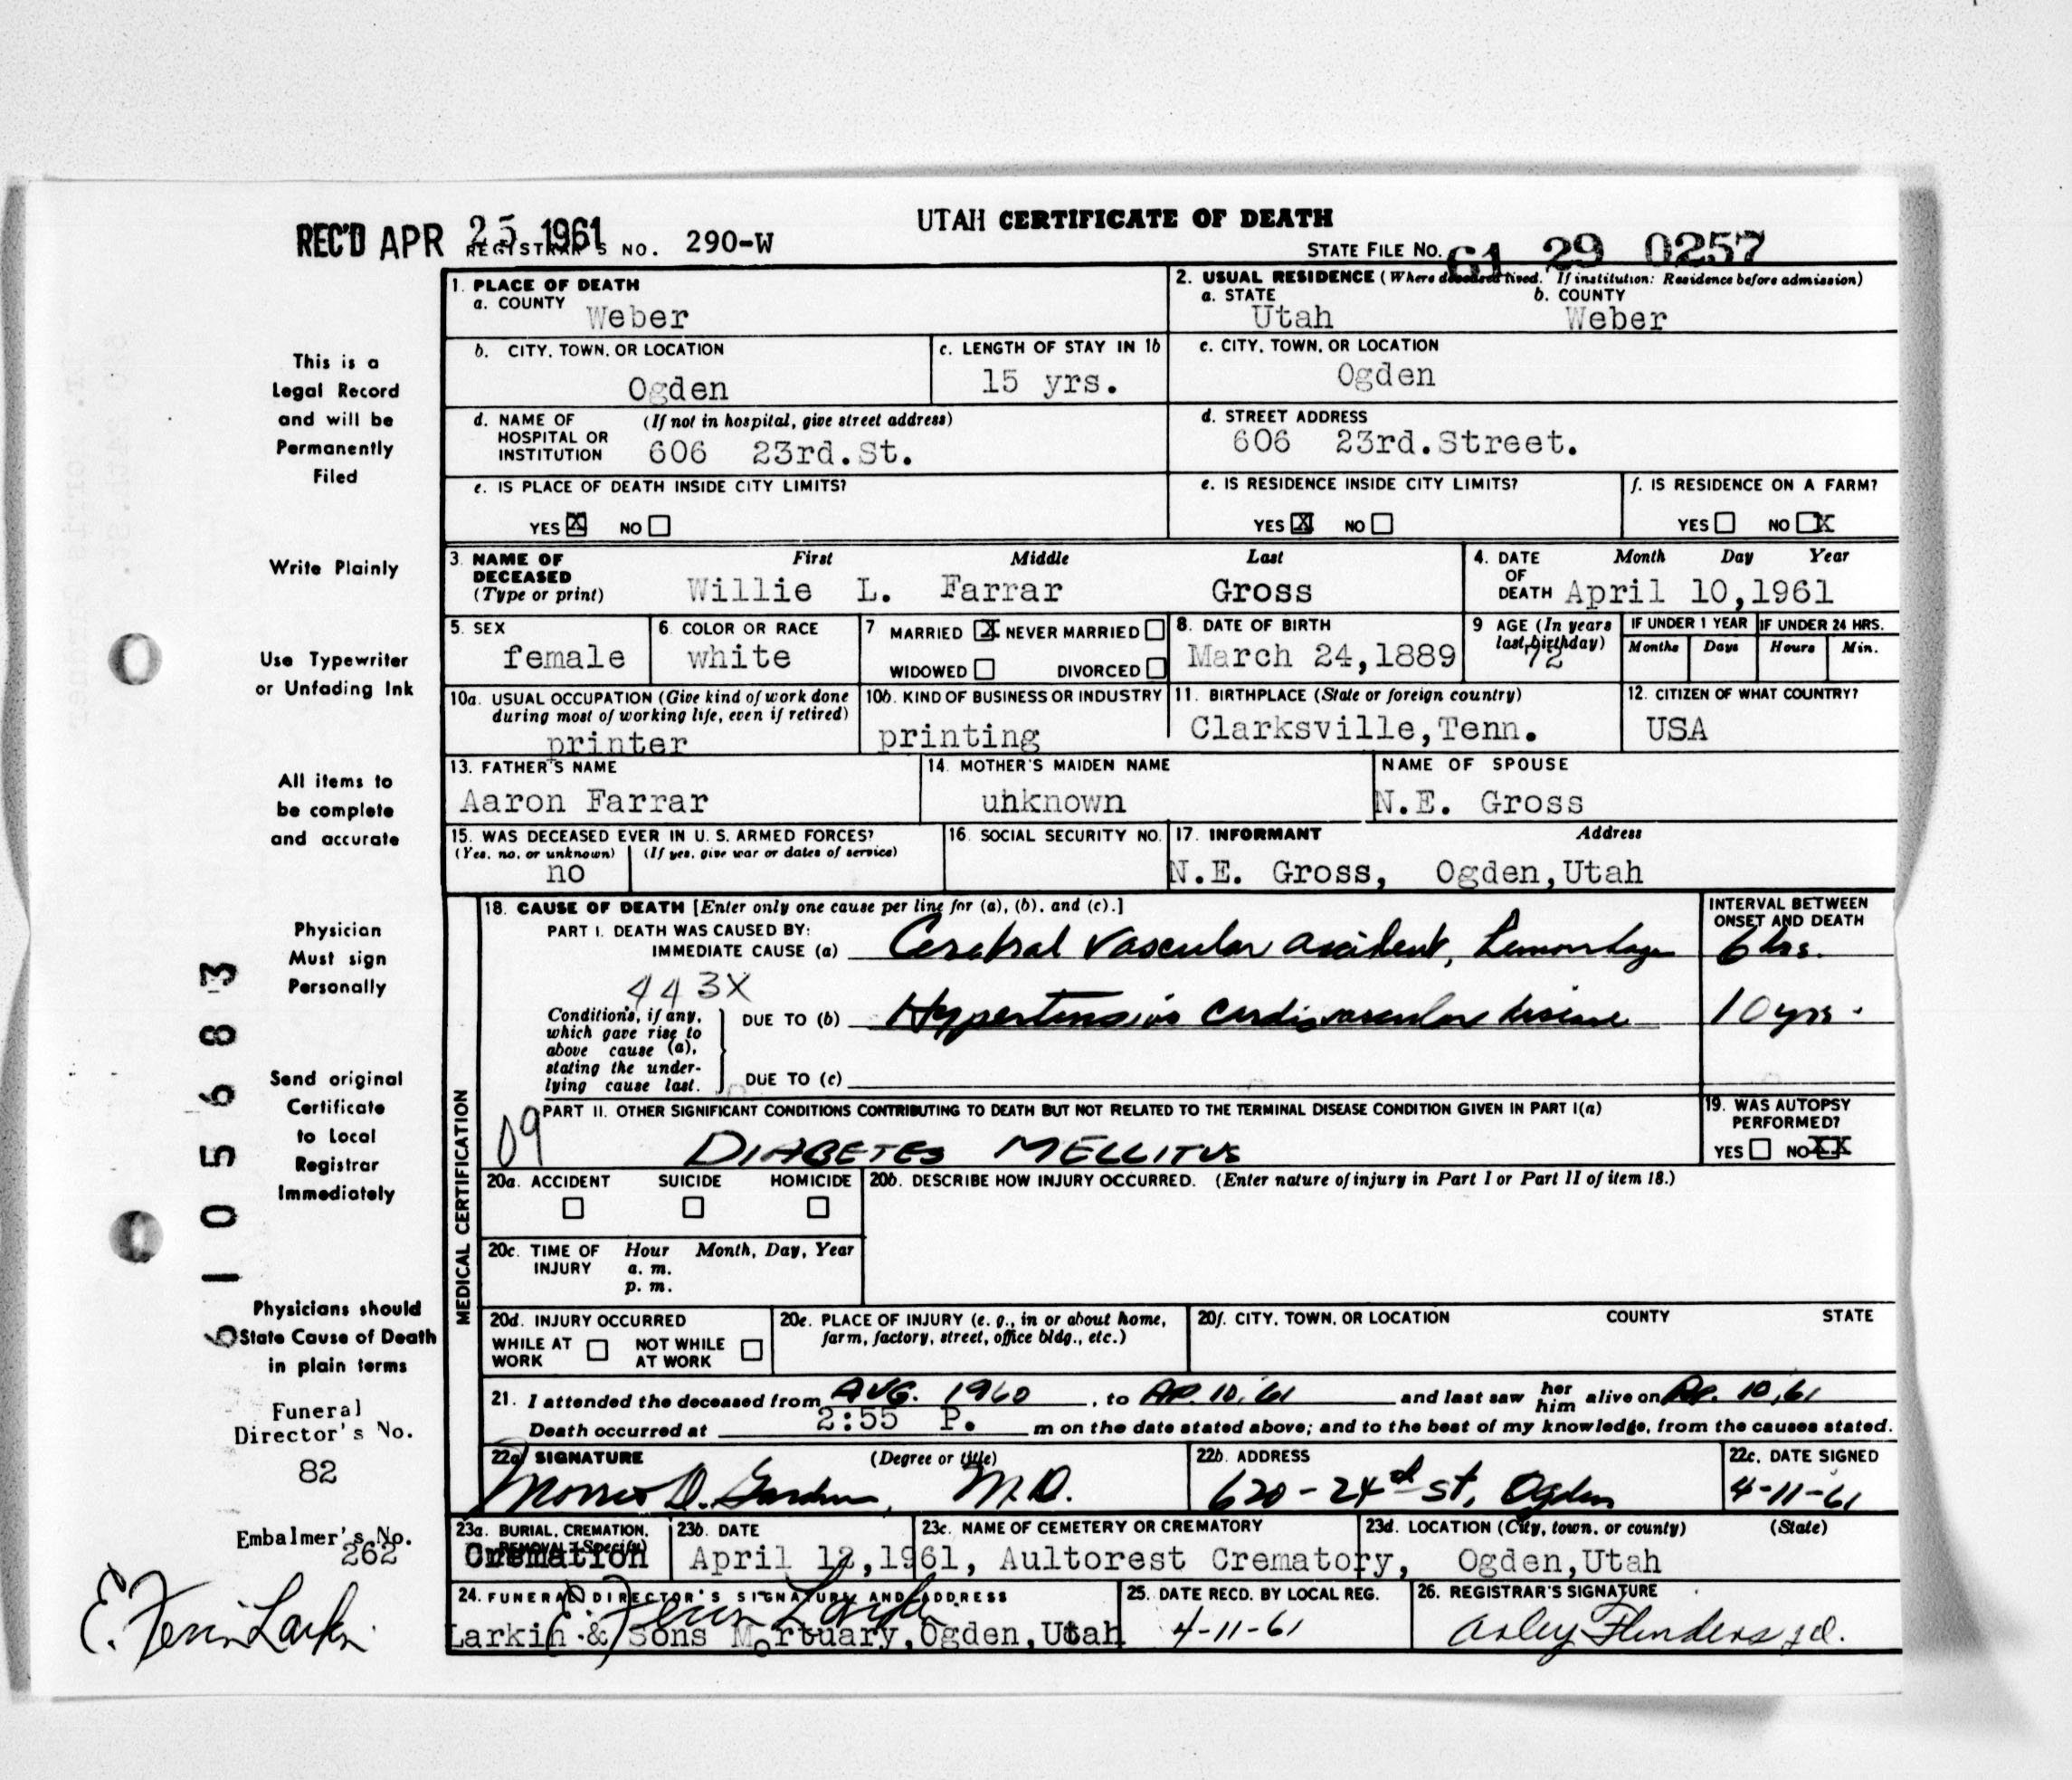 UTAH CERTIFICATE OF DEATH
REC'D APR 25 1961 REGISTRAR'S NO. 290-W
STATE FILE NO. 61 29 0257
1. PLACE OF DEATH
a. COUNTY Weber
2. USUAL RESIDENCE (Where deceased lived. If institution: Residence before admission)
a. STATE Utah b. COUNTY Weber
b. CITY, TOWN, OR LOCATION Ogden
c. LENGTH OF STAY IN 1b 15 yrs.
c. CITY, TOWN, OR LOCATION Ogden
d. NAME OF HOSPITAL OR INSTITUTION (If not in hospital, give street address) 606 23rd.St.
d. STREET ADDRESS 606 23rd.Street.
e. IS PLACE OF DEATH INSIDE CITY LIMITS? YES X NO
e. IS RESIDENCE INSIDE CITY LIMITS? YES X NO
f. IS RESIDENCE ON A FARM? YES NO X
3. NAME OF DECEASED (Type or print) First Middle Last
Willie L. Farrar Gross
4. DATE OF DEATH Month Day Year
April 10,1961
5. SEX female
6. COLOR OR RACE white
7 MARRIED X NEVER MARRIED WIDOWED DIVORCED
8. DATE OF BIRTH March 24,1889
9 AGE (In years last birthday) 72
IF UNDER 1 YEAR Months Days
IF UNDER 24 HRS. Hours Min.
10a. USUAL OCCUPATION (Give kind of work done during most of working life, even if retired) printer
10b. KIND OF BUSINESS OR INDUSTRY printing
11. BIRTHPLACE (State or foreign country) Clarksville,Tenn.
12. CITIZEN OF WHAT COUNTRY? USA
13. FATHER'S NAME Aaron Farrar
14. MOTHER'S MAIDEN NAME unknown
NAME OF SPOUSE N.E. Gross
15. WAS DECEASED EVER IN U. S. ARMED FORCES? (Yes, no, or unknown) (If yes, give war or dates of service) no
16. SOCIAL SECURITY NO.
17. INFORMANT Address
N.E. Gross, Ogden,Utah
MEDICAL CERTIFICATION
18. CAUSE OF DEATH [Enter only one cause per line for (a), (b), and (c).]
INTERVAL BETWEEN ONSET AND DEATH
PART I. DEATH WAS CAUSED BY:
IMMEDIATE CAUSE (a) Cerebral Vascular accident, hemorrhage 6 hrs.
443X
Conditions, if any, which gave rise to above cause (a), stating the underlying cause last.
DUE TO (b) Hypertensive cardiovascular disease 10 yrs.
DUE TO (c)
09
PART II. OTHER SIGNIFICANT CONDITIONS CONTRIBUTING TO DEATH BUT NOT RELATED TO THE TERMINAL DISEASE CONDITION GIVEN IN PART I(a)
DIABETES MELLITUS
19. WAS AUTOPSY PERFORMED? YES NO XX
20a. ACCIDENT SUICIDE HOMICIDE
20b. DESCRIBE HOW INJURY OCCURRED. (Enter nature of injury in Part I or Part II of item 18.)
20c. TIME OF INJURY Hour a. m. p. m. Month, Day, Year
20d. INJURY OCCURRED WHILE AT WORK NOT WHILE AT WORK
20e. PLACE OF INJURY (e. g., in or about home, farm, factory, street, office bldg., etc.)
20f. CITY, TOWN, OR LOCATION COUNTY STATE
21. I attended the deceased from AUG. 1960, to AP. 10, 61 and last saw her him alive on AP. 10, 61
Death occurred at 2:55 P. m on the date stated above; and to the best of my knowledge, from the causes stated.
22a. SIGNATURE (Degree or title) M.D.
22b. ADDRESS 620 - 24th St, Ogden
22c. DATE SIGNED 4-11-61
23a. BURIAL, CREMATION, REMOVAL (Specify) Cremation
23b. DATE April 12,1961,
23c. NAME OF CEMETERY OR CREMATORY Aultorest Crematory,
23d. LOCATION (City, town, or county) (State) Ogden,Utah
24. FUNERAL DIRECTOR'S SIGNATURE AND ADDRESS
Larkin & Sons Mortuary,Ogden,Utah
25. DATE RECD. BY LOCAL REG. 4-11-61
26. REGISTRAR'S SIGNATURE
This is a
Legal Record
and will be
Permanently
Filed
Write Plainly
Use Typewriter
or Unfading Ink
All items to
be complete
and accurate
Physician
Must sign
Personally
Send original
Certificate
to Local
Registrar
Immediately
Physicians should
State Cause of Death
in plain terms
Funeral
Director's No.
82
Embalmer's No.
262
E. Ferrin Larkin
6105683